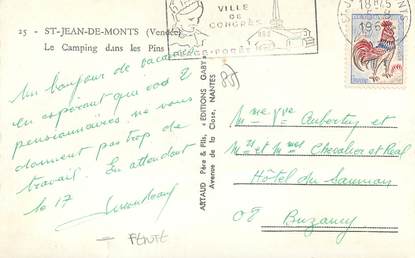 25 - ST-JEAN-DE-MONTS (Vendée)
Le Camping dans les Pins
VILLE
DE
CONGRÈS
PLAGE-FORÊT
18H45
5-8
196
85
Un bonjour de vacances
en espérant que vos 2
pensionnaires ne vous
donnent pas trop de
travail. En attendant
le 17
ARTAUD Père & Fils, "ÉDITIONS GABY"
Avenue de la Close, NANTES
Mme Vve Aubertuy et
Mr et Mme Chevalier et Real
Hôtel du Saumon
08 Buzancy
FENTE